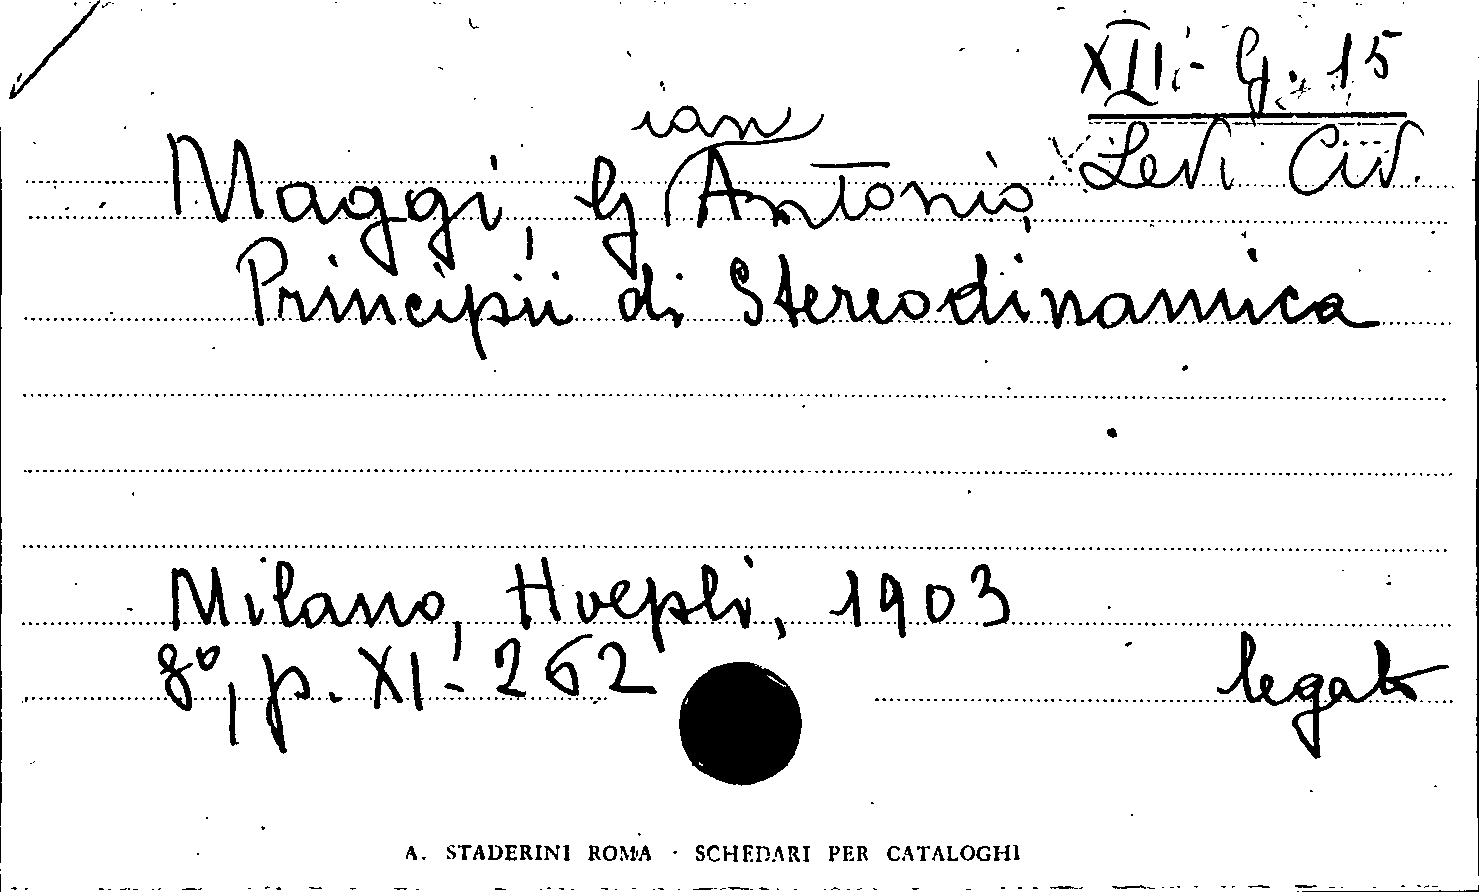 XII - G. 15
Levi Civ.
Maggi, G ian Antonio
Principii di Stereodinamica
Milano, Hoepli, 1903
8°, p. XI - 262
legato
A. STADERINI ROMA · SCHEDARI PER CATALOGHI